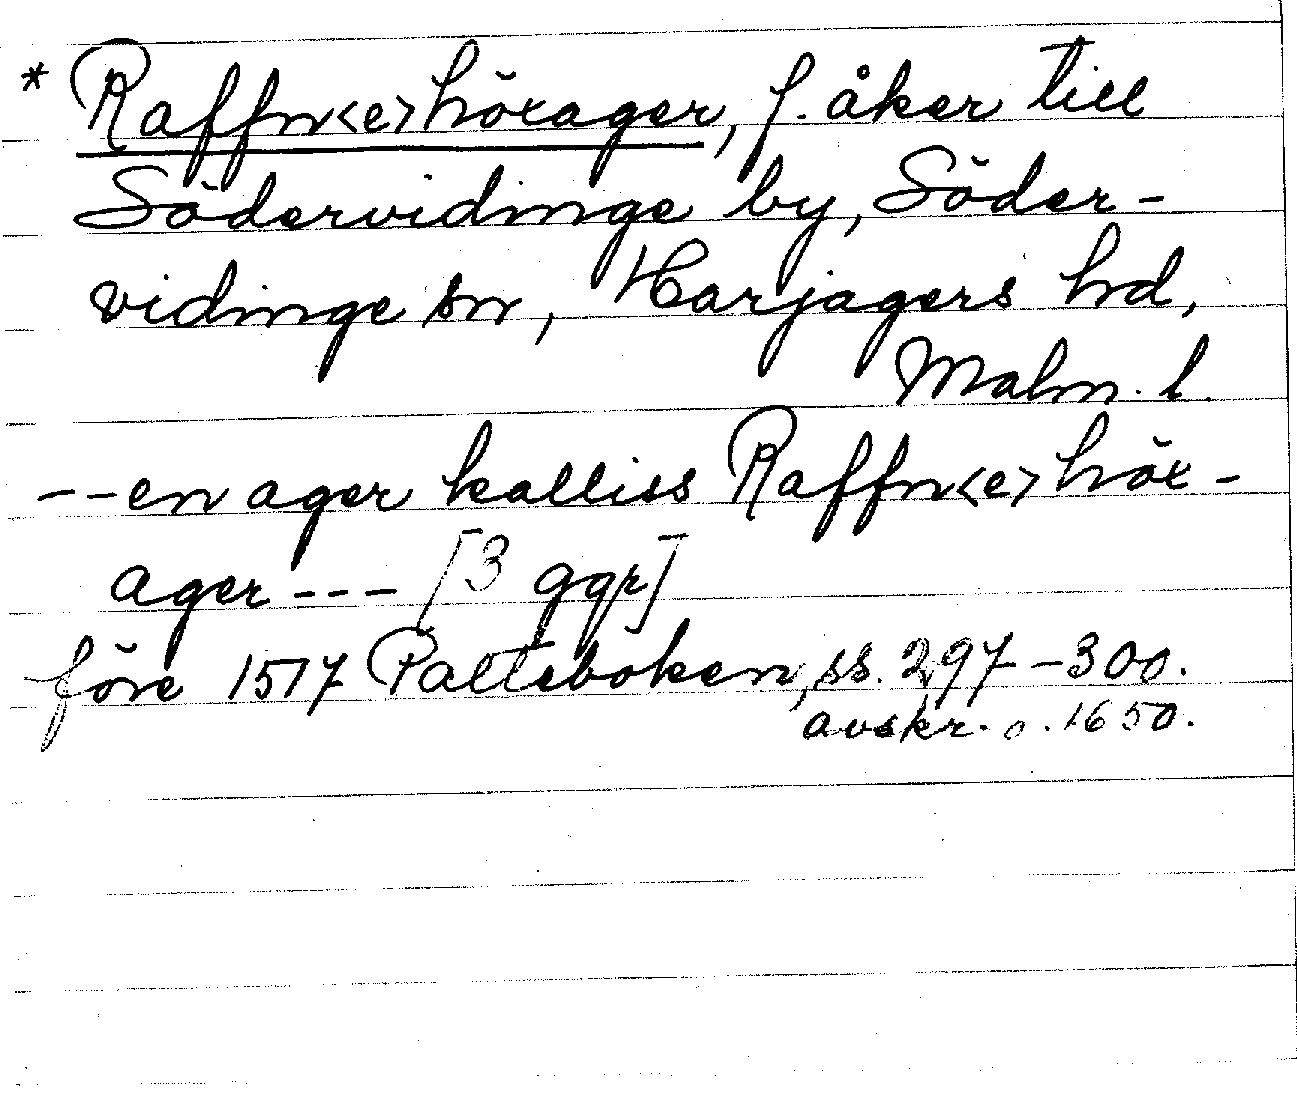 * Raffn<e>höxager, f. åker till
Södervidinge by, Söder-
vidinge sn, Harjagers hd,
Malm. l.
--en ager kalliss Raffn<e>höx-
ager --- [3 ggr]
före 1517 Palteboken, ss. 297-300.
avskr. o. 1650.